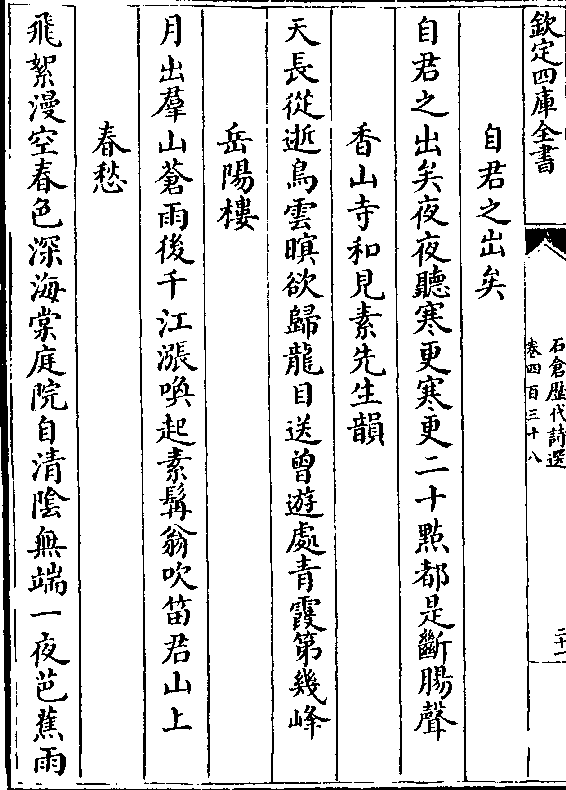 欽定四庫全書
石倉歴代詩選
卷四百三十八
二十一
自君之出矣
自君之出矣夜夜聽寒更寒更二十點都是斷腸聲
香山寺和見素先生韻
天長從逝鳥雲暝欲歸龍目送曾遊處青霞第幾峰
岳陽樓
月出羣山蒼雨後千江漲喚起素髯翁吹笛君山上
春愁
飛絮漫空春色深海棠庭院自清陰無端一夜芭蕉雨